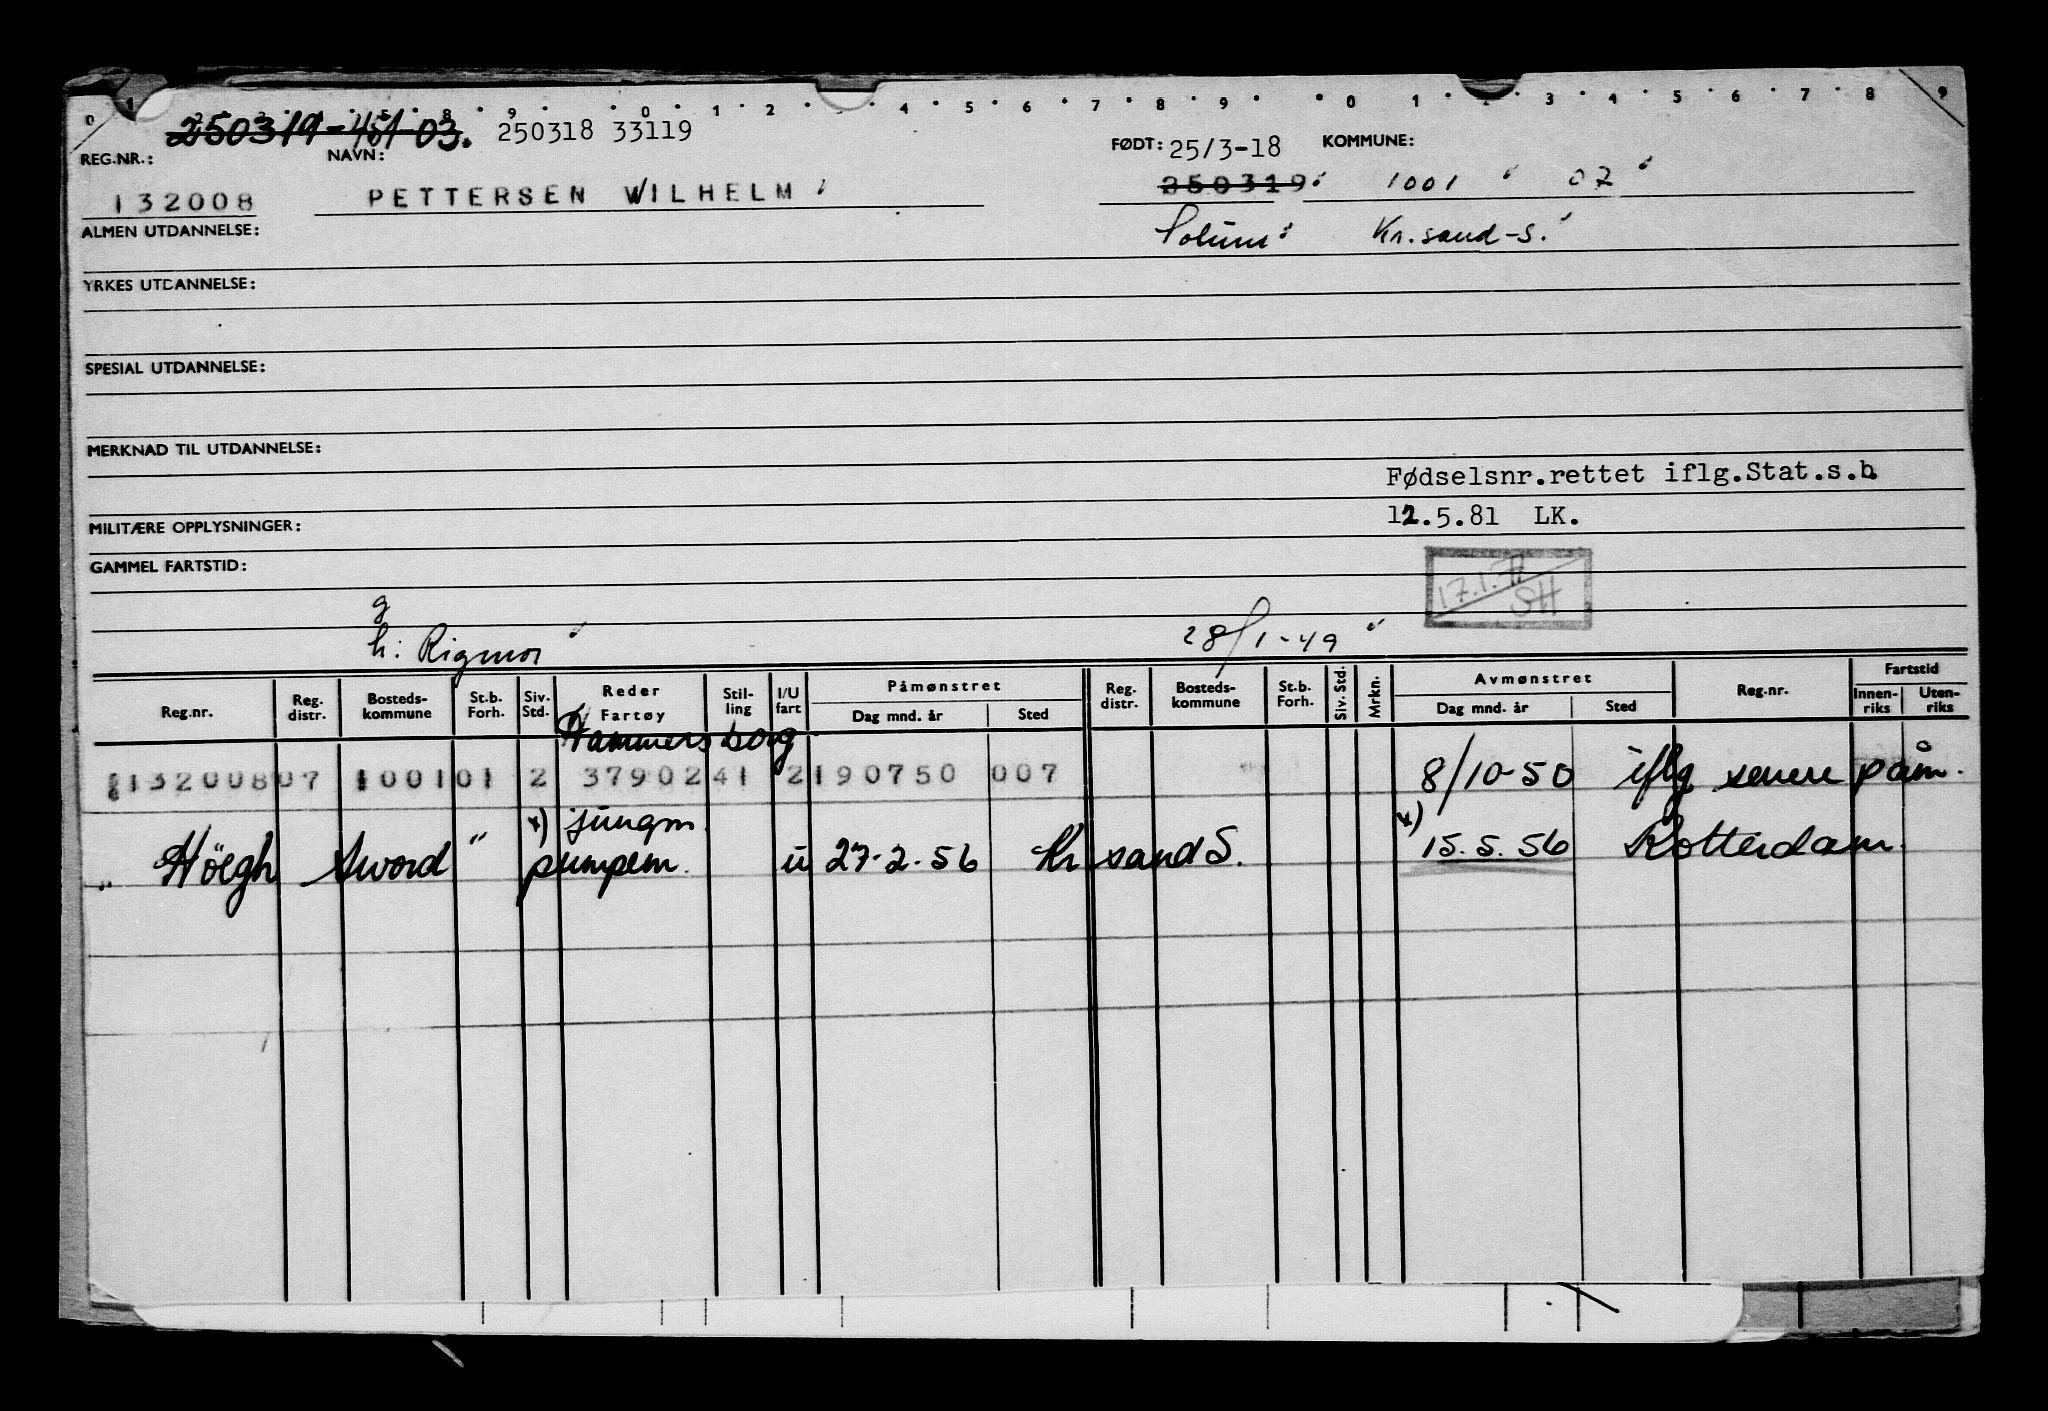 0 1 2 3 5 8 9 0 1 2 4 5 6 7 8 9 0 1 2 3 4 5 6 7 8 9
250319-451-03. 250318 33119
REG.NR.: NAVN: FØDT: 25/3-18 KOMMUNE:
132008 PETTERSEN WILHELM 250319 1001 07
ALMEN UTDANNELSE: Solum Kr.sand-S.
YRKES UTDANNELSE:
SPESIAL UTDANNELSE:
MERKNAD TIL UTDANNELSE:
Fødselsnr.rettet iflg.Stat.s.b.
MILITÆRE OPPLYSNINGER: 12.5.81 LK.
GAMMEL FARTSTID:
17.1.71 SH
g
h: Rigmor 28/1-49
Reg.nr. Reg. distr. Bosteds-kommune St.b. Forh. Siv. Std. Reder Fartøy Stil-ling I/U fart Påmønstret Dag mnd. år Sted Reg. distr. Bosteds-kommune St.b. Forh. Siv. Std. Mrkn. Avmønstret Dag mnd. år Sted Reg.nr. Fartstid Innen-riks Uten-riks
Hammersborg
132008 07 1001 01 2 37902 41 2 190750 007 8/10-50 iflg. senere påm.
x) jungm x)
" Höegh Sword " pumpem. u 27-2-56 Kr sand S. 15.5.56 Rotterdam.